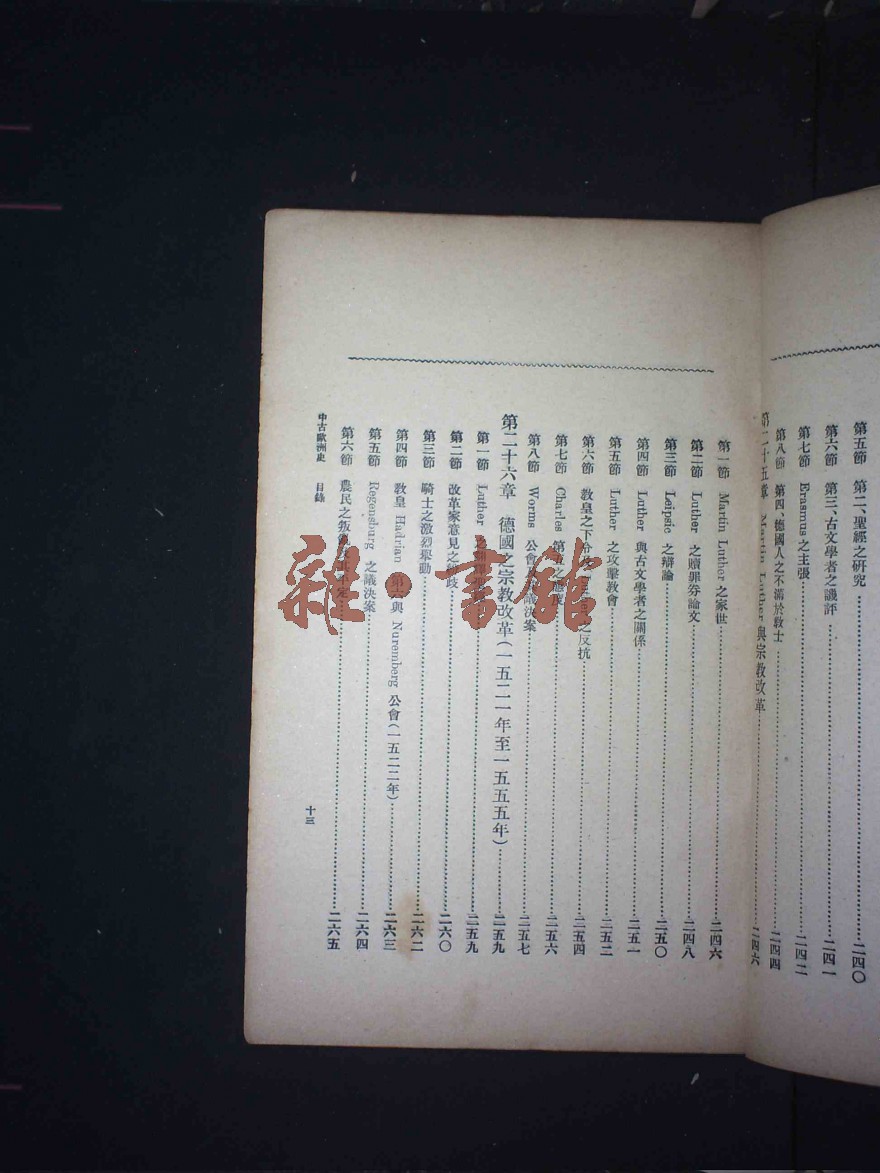 第五節 第二、聖經之研究……二四〇
第六節 第三、古文學者之譏評……二四一
第七節 Erasmus之主張……二四二
第八節 第四、德國人之不滿於教士……二四四
第二十五章 Martin Luther 與宗教改革……二四六
第一節 Martin Luther 之家世……二四六
第二節 Luther 之贖罪券論文……二四八
第三節 Leipsic 之辯論……二五〇
第四節 Luther 與古文學者之關係……二五一
第五節 Luther 之攻擊教會……二五二
第六節 教皇之下 之反抗……二五四
第七節 Charles 第五之態度……二五六
第八節 Worms 公會 議決案……二五七
第二十六章 德國之宗教改革(一五二一年至一五五五年)……二五九
第一節 Luther ……二五九
第二節 改革家意見之紛歧……二六〇
第三節 騎士之激烈舉動……二六二
第四節 教皇 Hadrian 第六與 Nuremberg 公會(一五二二年)……二六三
第五節 Regensburg 之議決案……二六四
第六節 農民之叛 平定……二六五
中古歐洲史 目錄
十三
雜·書館